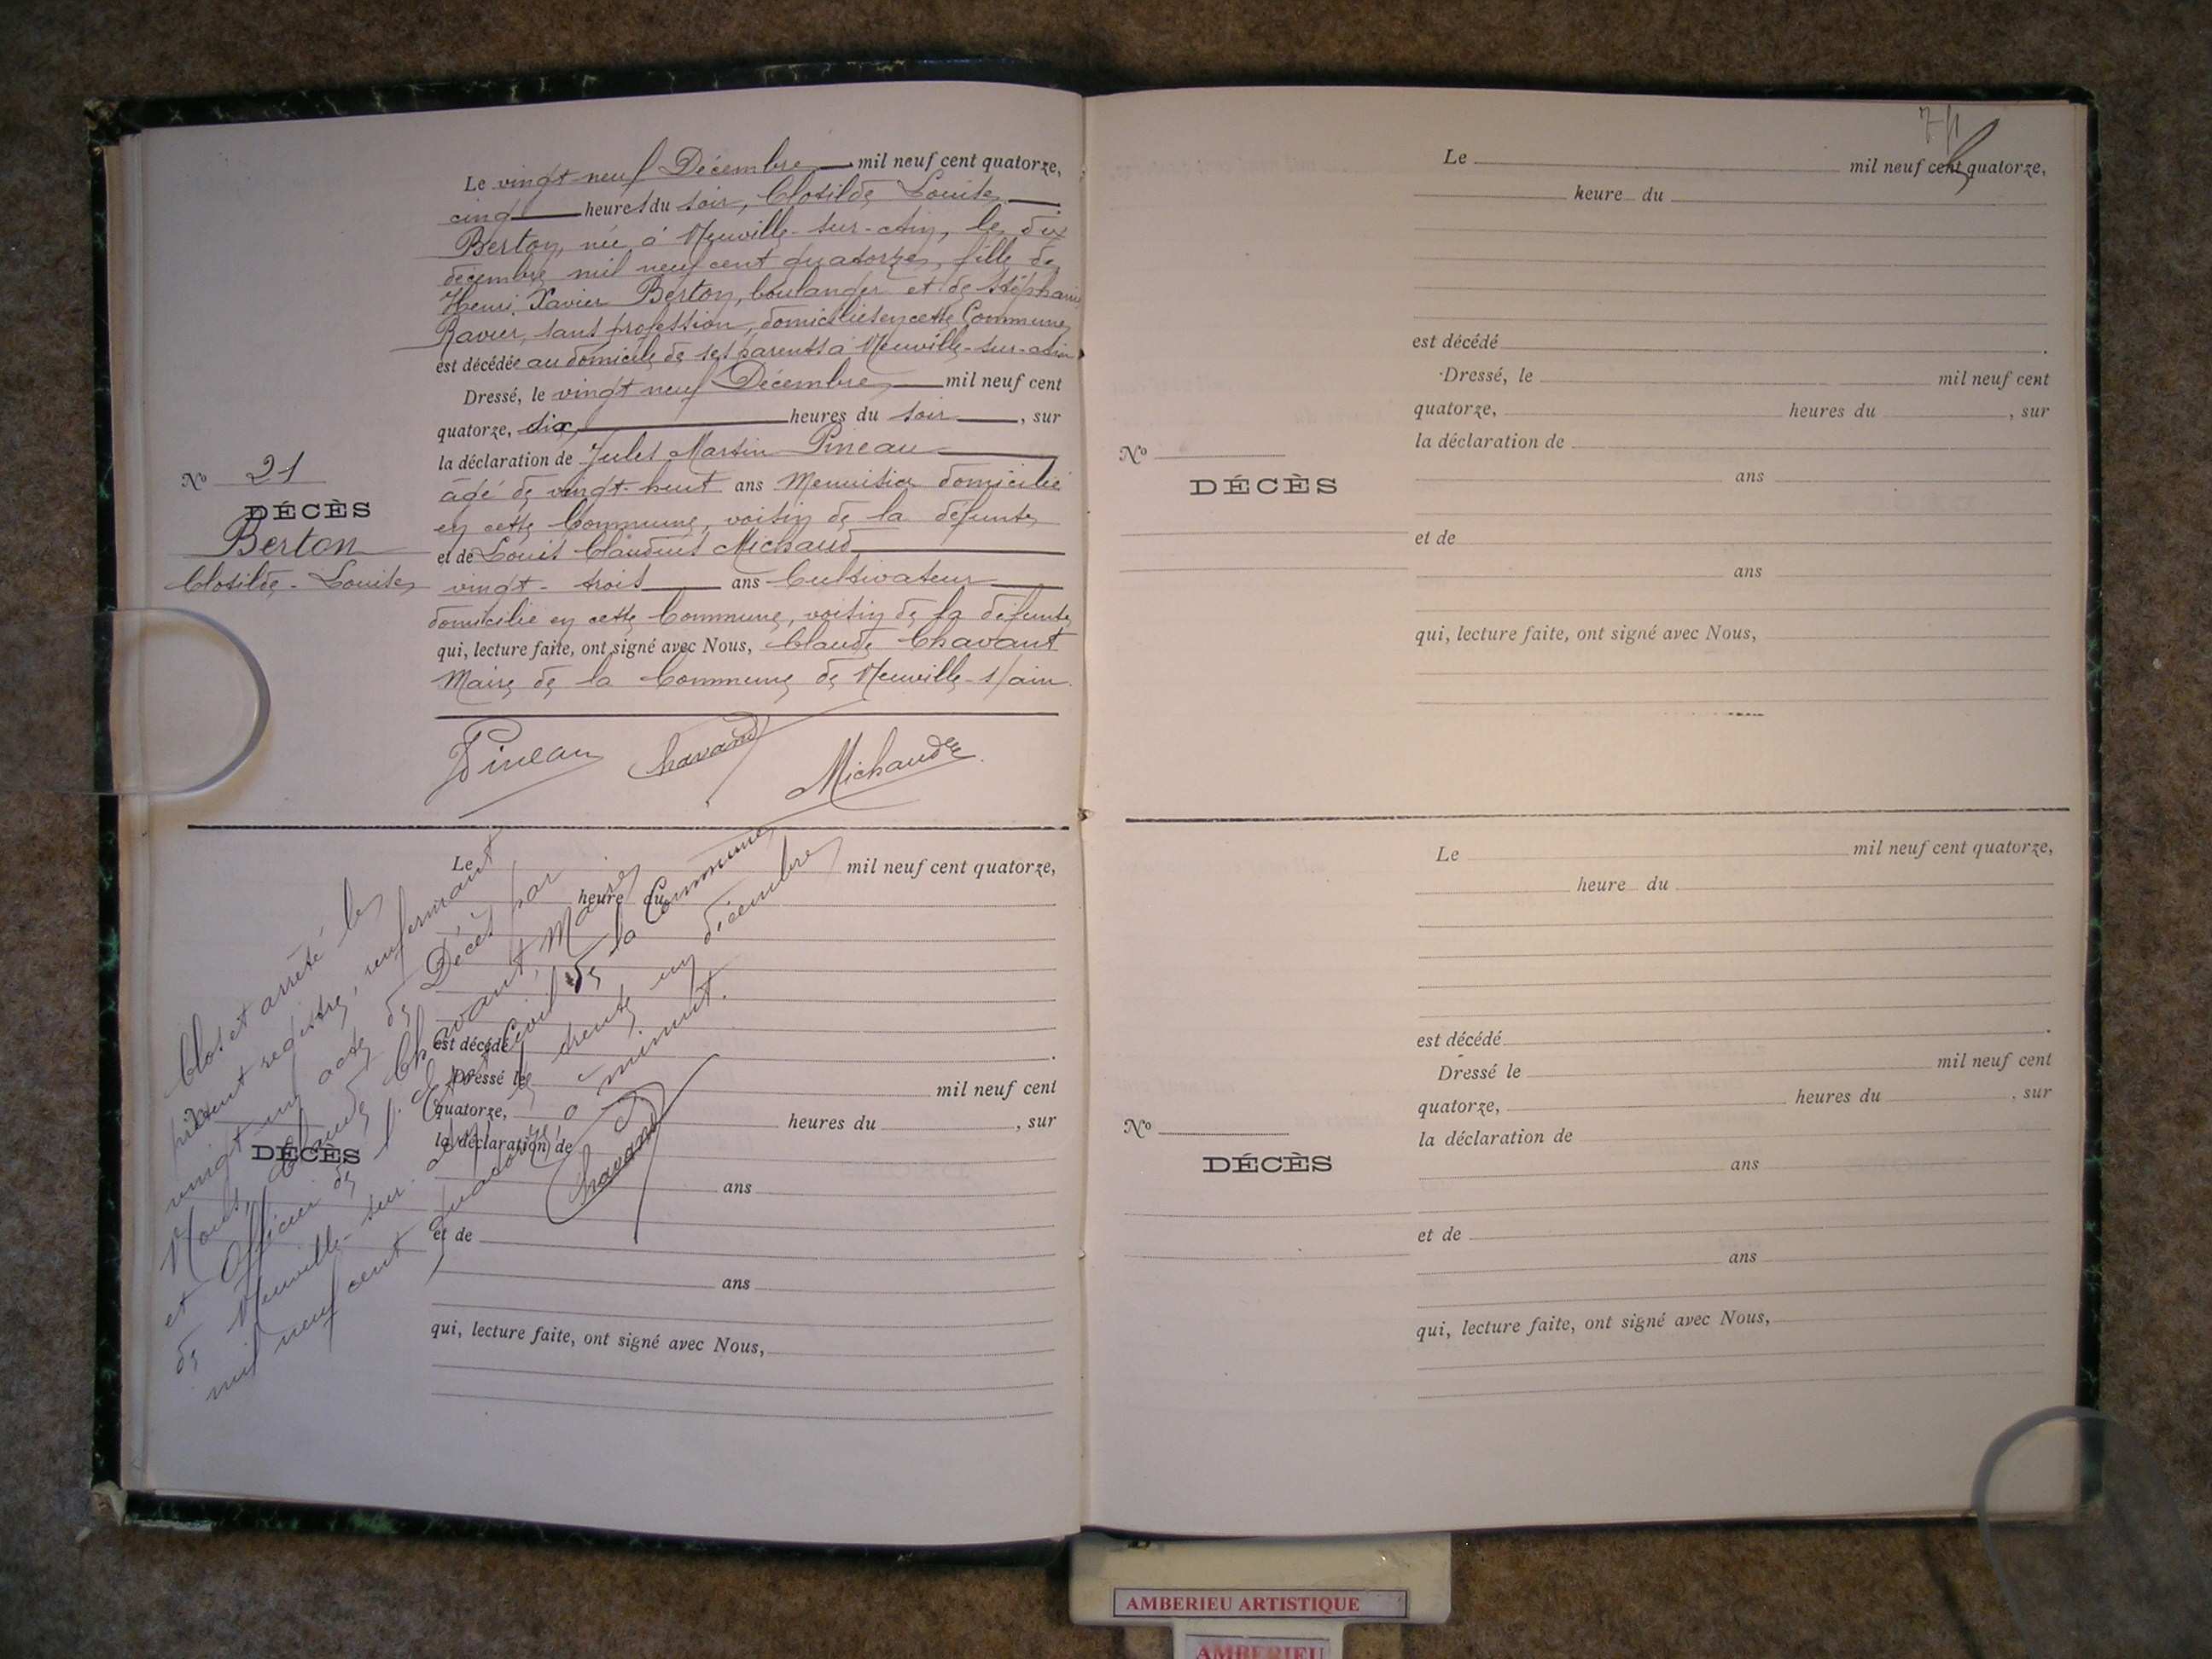 Le vingt-neuf Décembre mil neuf cent quatorze,
cinq heures du soir, Clotilde Louise
Berton, née à Neuville-sur-Ain, le dix
décembre mil neuf cent quatorze, fille de
Henri Xavier Berton, boulanger et de Stéphanie
Ravier, sans profession, domiciliés en cette Commune
est décédée au domicile de ses parents à Neuville-sur-Ain
Dressé, le vingt neuf Décembre mil neuf cent
quatorze, dix heures du soir, sur
la déclaration de Jules Martin Pineau
âgé de vingt-huit ans Menuisier domicilié
en cette Commune, voisin de la défunte
et de Louis Claudius Michaud
vingt-trois ans Cultivateur
domicilié en cette Commune, voisin de la défunte
qui, lecture faite, ont signé avec Nous, Claude Chavant
Maire de la Commune de Neuville-s/ain.
No 21
DÉCÈS
Berton
Clotilde-Louise
Pineau Chavant Michaud
Le mil neuf cent quatorze,
heure du
est décédé
Dressé le mil neuf cent
quatorze, heures du , sur
la déclaration de
ans
et de
ans
qui, lecture faite, ont signé avec Nous,
DÉCÈS
Clos et arrêté le
présent registre, renfermant
vingt un acte de Décès par
Nous, Claude Chavant, Maire
et Officier de l'Etat Civil de la Commune
de Neuville-sur-Ain, le trente un décembre
mil neuf cent quatorze à minuit.
Chavant
7/1
Le mil neuf cent quatorze,
heure du
est décédé .
Dressé, le mil neuf cent
quatorze, heures du , sur
la déclaration de
ans
et de
ans
qui, lecture faite, ont signé avec Nous,
No
DÉCÈS
Le mil neuf cent quatorze,
heure du
est décédé .
Dressé le mil neuf cent
quatorze, heures du , sur
la déclaration de
ans
et de
ans
qui, lecture faite, ont signé avec Nous,
No
DÉCÈS
AMBERIEU ARTISTIQUE
AMBERIEU